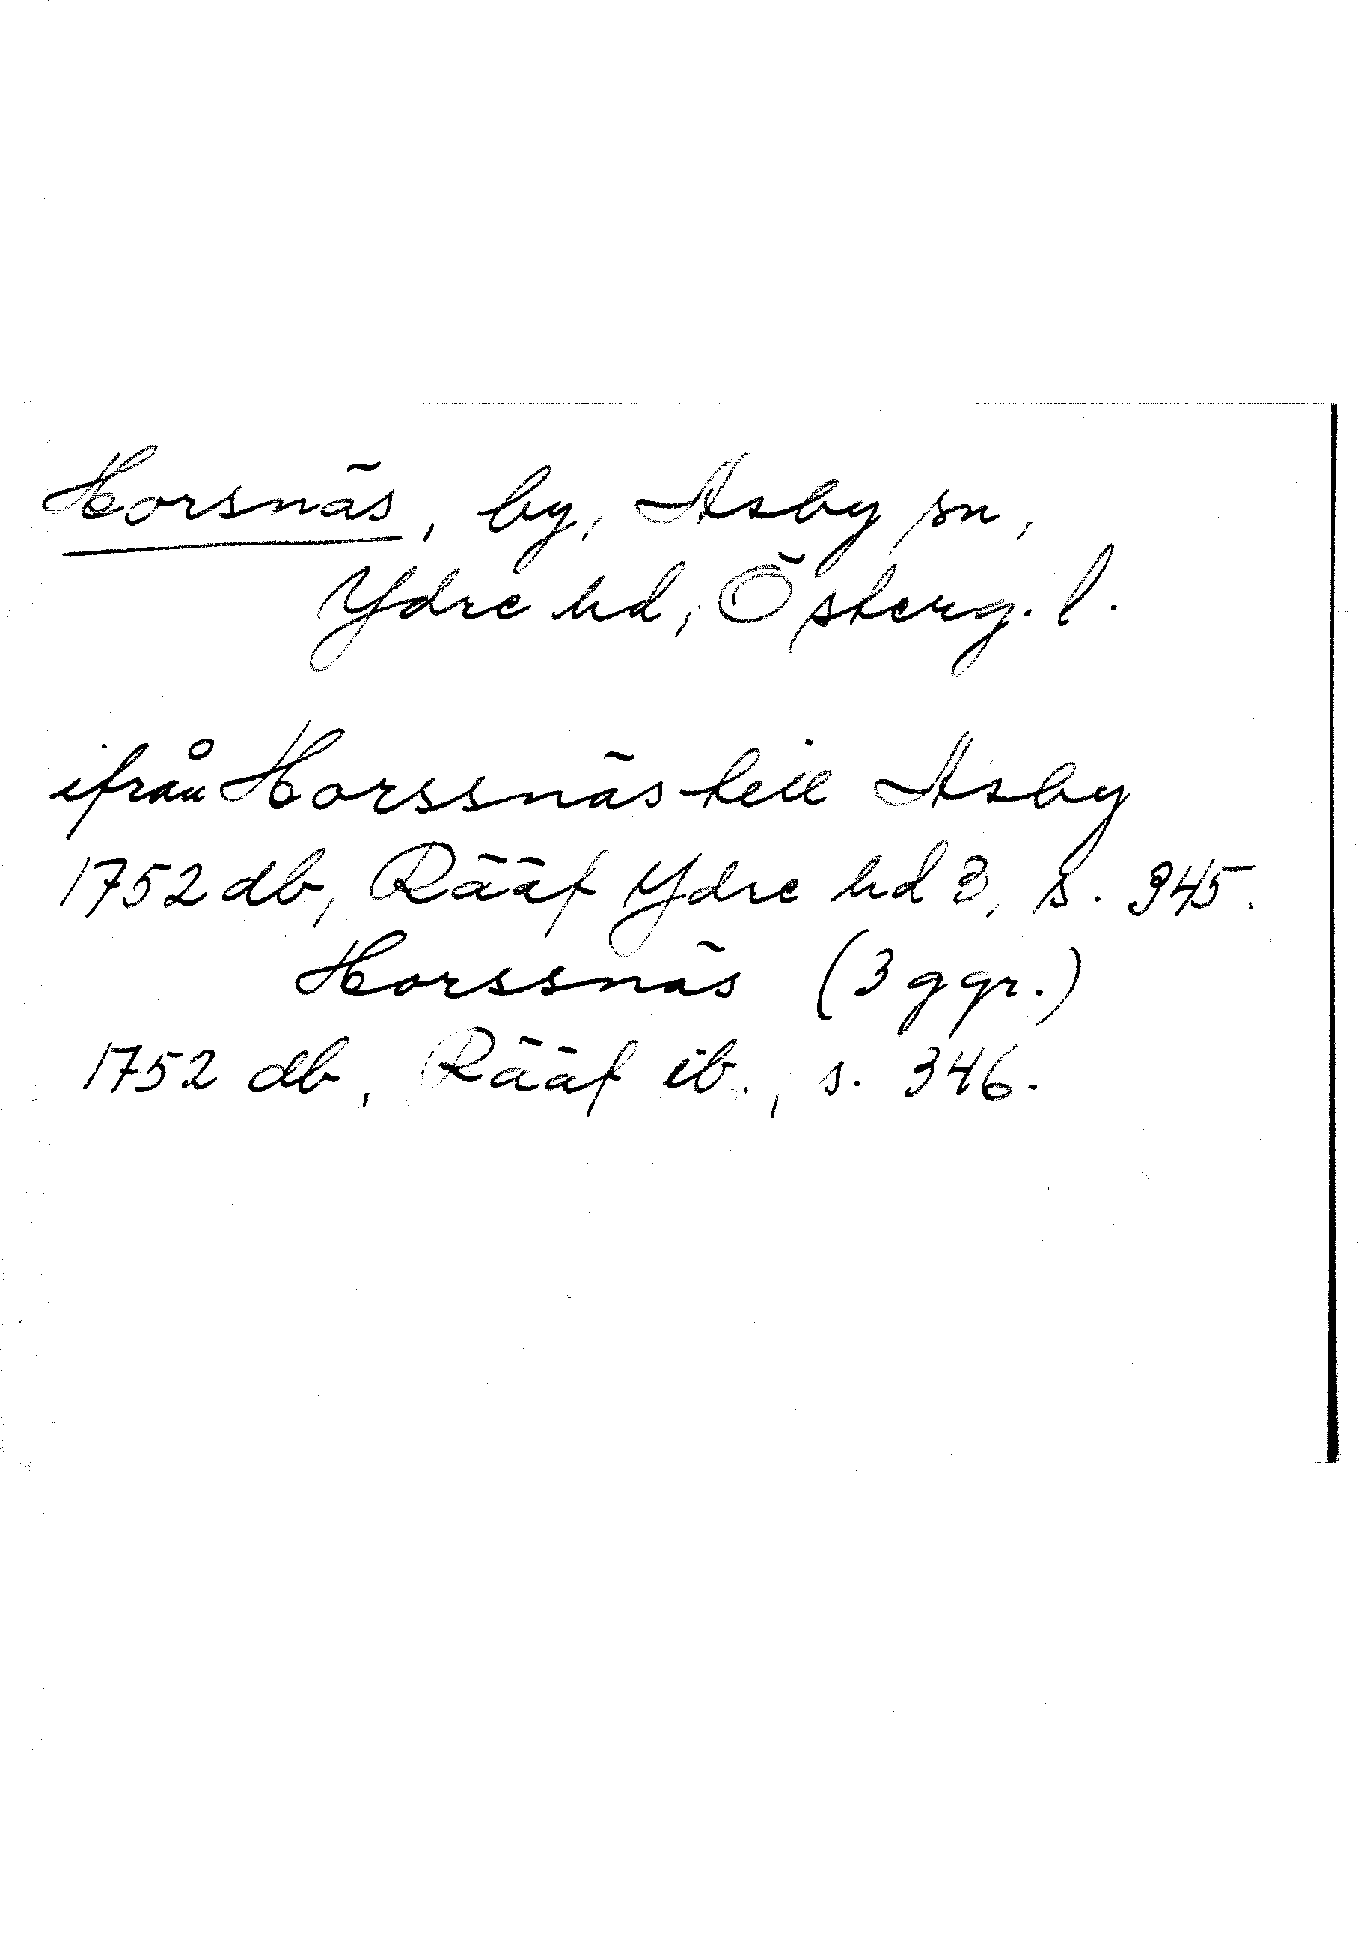 Horsnäs, by, Asby sn,
Ydre hd, Österg. l.
ifrån Horssnäs till Asby
1752 db, Rääf Ydre hd 3, s. 345.
Horssnäs (3 ggr.)
1752 db, Rääf ib., s. 346.